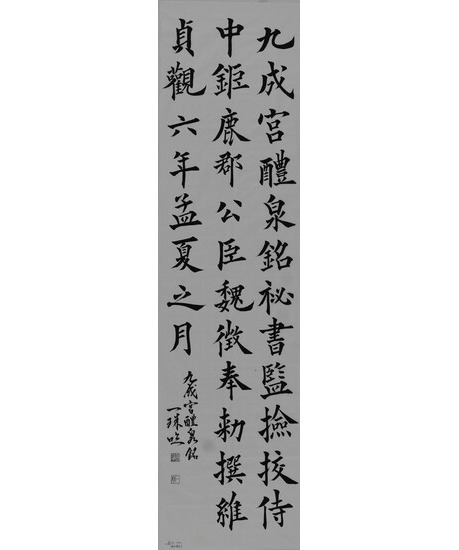 九成宮醴泉銘祕書監撿挍侍
中鉅鹿郡公臣魏徵奉勑撰維
貞觀六年孟夏之月
九成宮醴泉銘